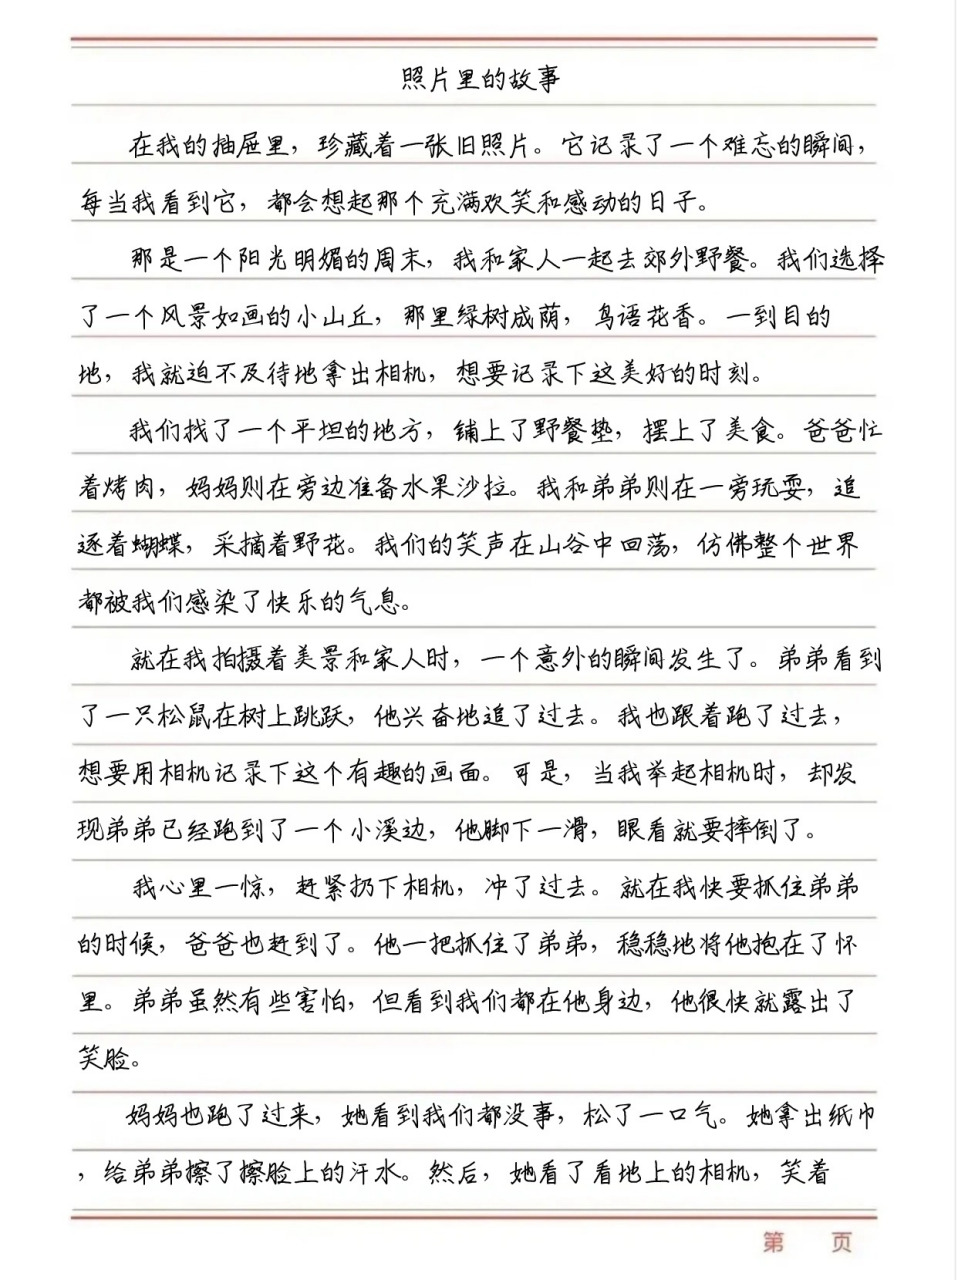 照片里的故事
在我的抽屉里，珍藏着一张旧照片。它记录了一个难忘的瞬间，
每当我看到它，都会想起那个充满欢笑和感动的日子。
那是一个阳光明媚的周末，我和家人一起去郊外野餐。我们选择
了一个风景如画的小山丘，那里绿树成荫，鸟语花香。一到目的
地，我就迫不及待地拿出相机，想要记录下这美好的时刻。
我们找了一个平坦的地方，铺上了野餐垫，摆上了美食。爸爸忙
着烤肉，妈妈则在旁边准备水果沙拉。我和弟弟则在一旁玩耍，追
逐着蝴蝶，采摘着野花。我们的笑声在山谷中回荡，仿佛整个世界
都被我们感染了快乐的气息。
就在我拍摄着美景和家人时，一个意外的瞬间发生了。弟弟看到
了一只松鼠在树上跳跃，他兴奋地追了过去。我也跟着跑了过去，
想要用相机记录下这个有趣的画面。可是，当我举起相机时，却发
现弟弟已经跑到了一个小溪边，他脚下一滑，眼看就要摔倒了。
我心里一惊，赶紧扔下相机，冲了过去。就在我快要抓住弟弟
的时候，爸爸也赶到了。他一把抓住了弟弟，稳稳地将他抱在了怀
里。弟弟虽然有些害怕，但看到我们都在他身边，他很快就露出了
笑脸。
妈妈也跑了过来，她看到我们都没事，松了一口气。她拿出纸巾
，给弟弟擦了擦脸上的汗水。然后，她看了看地上的相机，笑着
第 页